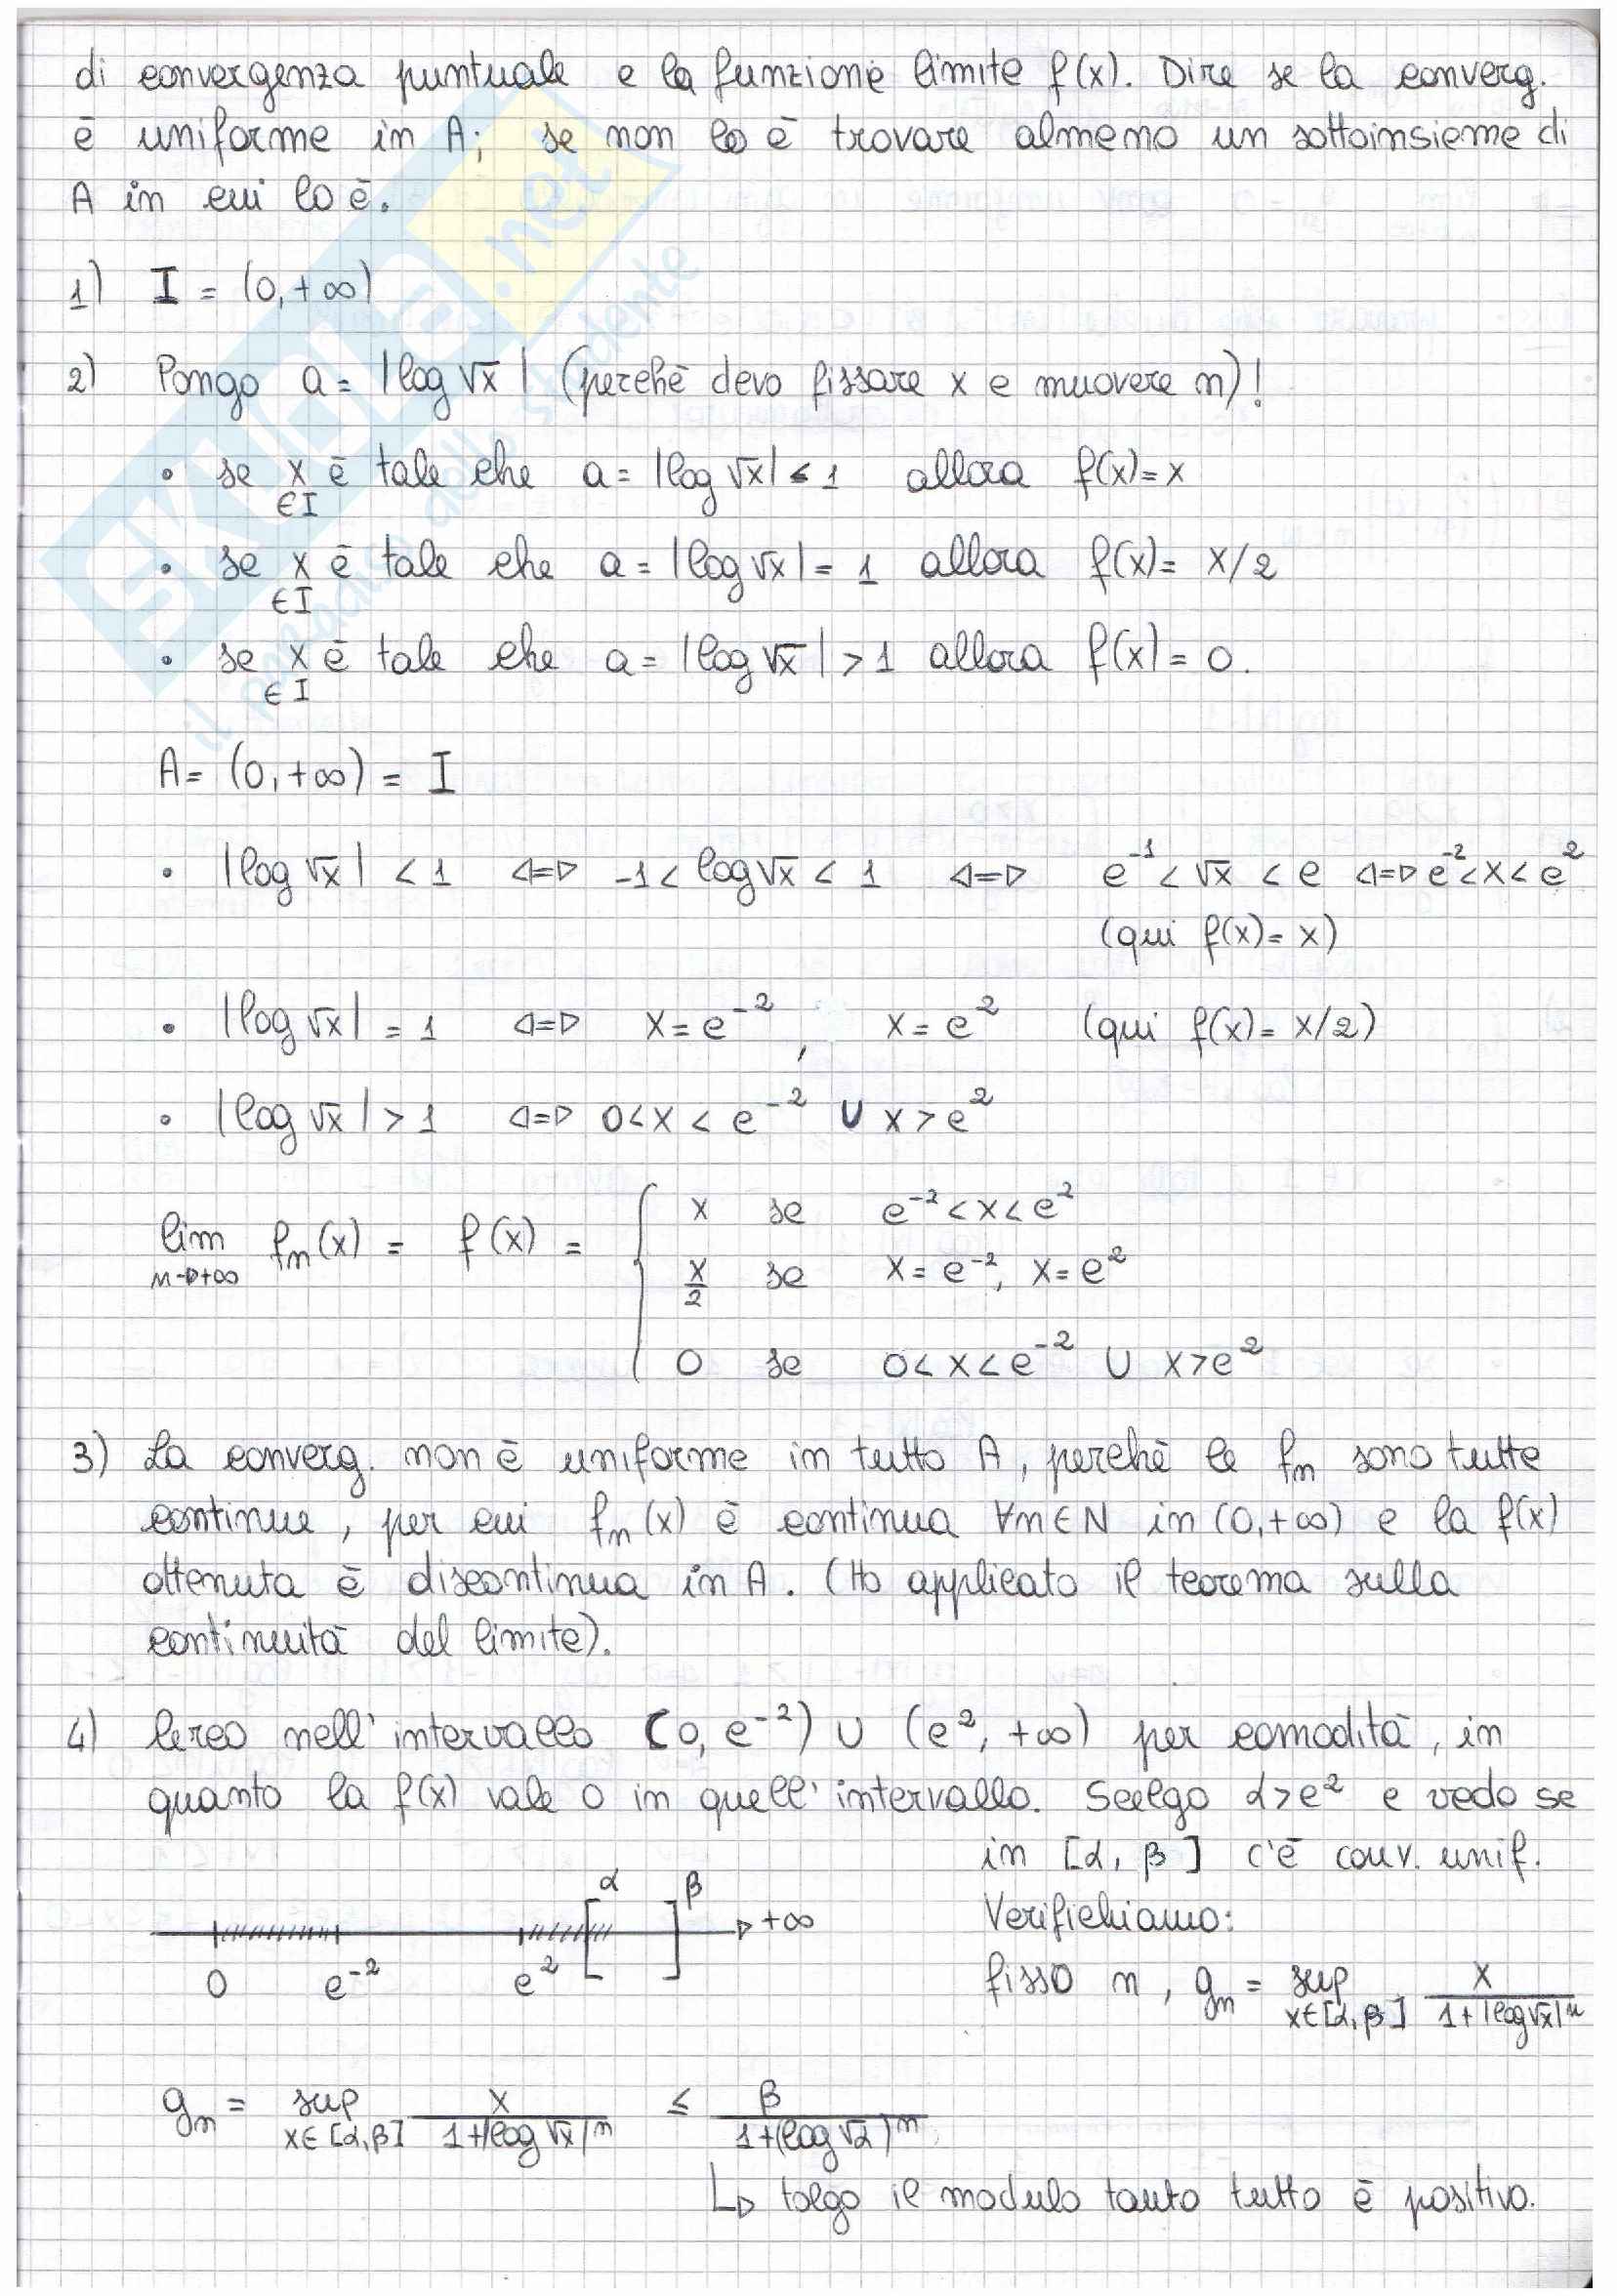 di convergenza puntuale e la funzione limite f(x). Dire se la converg.
è uniforme in A; se non lo è trovare almeno un sottoinsieme di
A in cui lo è.
1) I = (0,+∞)
2) Pongo a = |log √x| (perchè devo fissare x e muovere n)!
• se x è tale che a = |log √x| < 1 allora f(x)= x
∈I
• se x è tale che a = |log √x| = 1 allora f(x)= x/2
∈I
• se x è tale che a = |log √x| > 1 allora f(x)= 0.
∈I
A = (0,+∞) = I
• |log √x| < 1 ⇔ -1 < log √x < 1 ⇔ e⁻¹ < √x < e ⇔ e⁻² < x < e²
(qui f(x)= x)
• |log √x| = 1 ⇔ x = e⁻² , x = e² (qui f(x)= x/2)
• |log √x| > 1 ⇔ 0 < x < e⁻² ∪ x > e²
x se e⁻² < x < e²
lim fn(x) = f(x) =
n→+∞
x/2 se x = e⁻², x = e²
0 se 0 < x < e⁻² ∪ x > e²
3) La converg. non è uniforme in tutto A, perchè le fn sono tutte
continue, per cui fn(x) è continua ∀n∈N in (0,+∞) e la f(x)
ottenuta è discontinua in A. (Ho applicato il teorema sulla
continuità del limite).
4) Cerco nell'intervallo (0, e⁻²) ∪ (e², +∞) per comodità, in
quanto la f(x) vale 0 in quell'intervallo. Scelgo α > e² e vedo se
in [α, β] c'è conv. unif.
α β
+∞
0 e⁻² e²
Verifichiamo:
fisso n, gn = sup x∈[α,β] x / 1+|log √x|ⁿ
gn = sup x∈[α,β] x / 1+|log √x|ⁿ ≤ β / 1+(log √α)ⁿ
↳ tolgo il modulo tanto tutto è positivo.
SKUOLA.net
il paradiso dello studente